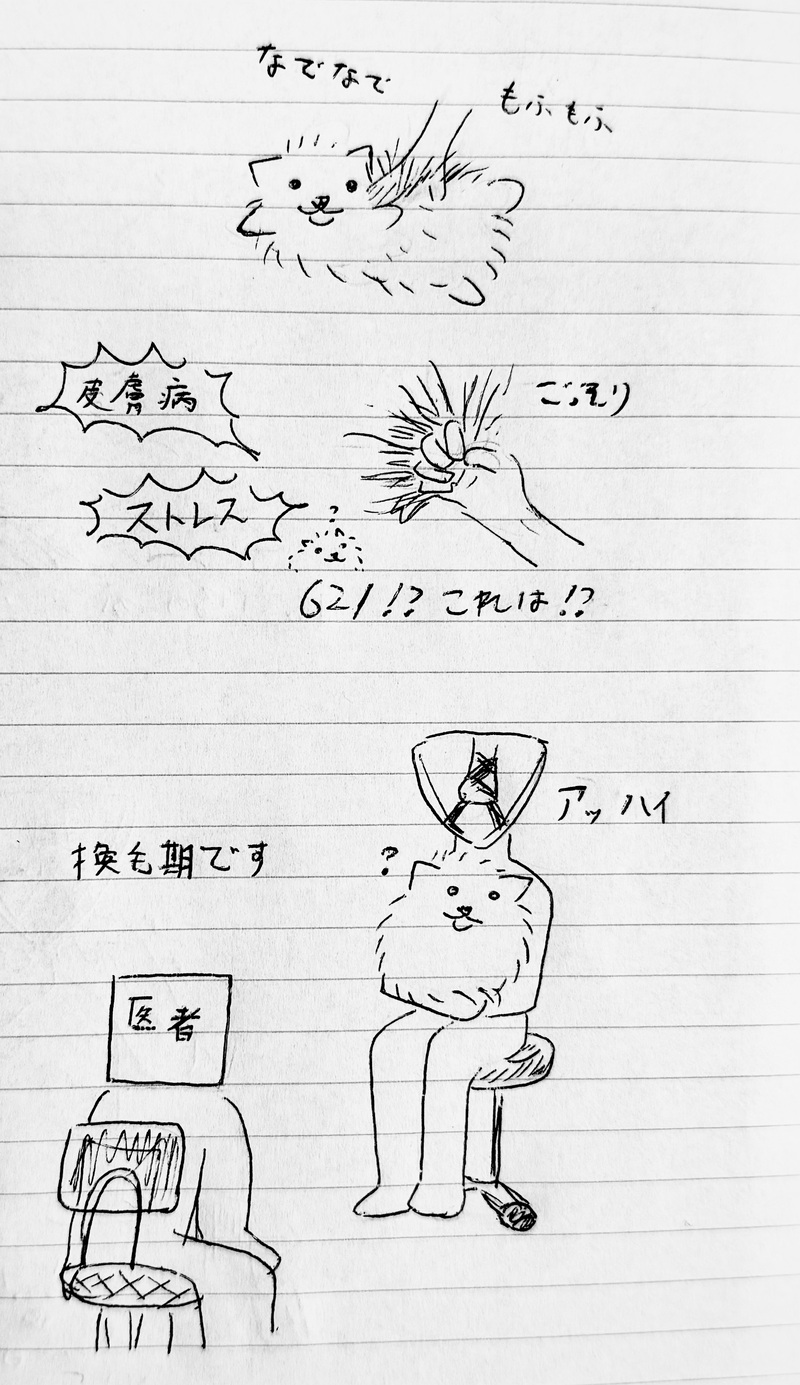 なでなで
もふもふ
皮膚病
ごっそり
ストレス
?
621!? これは!?
アッ ハイ
換毛期です
?
医者